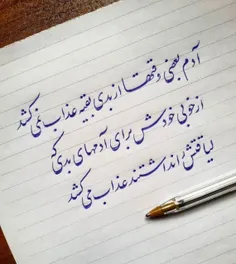 آدم بعضی وقتها از بدی بقیه عذاب نمی کشد
از خوبی خودش برای آدمهای بدی که
لیاقتش را نداشتند عذاب می کشد